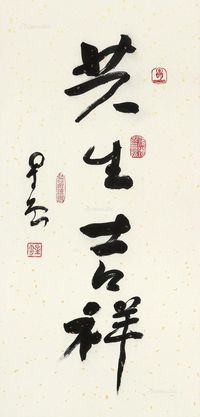 共生吉祥
星云